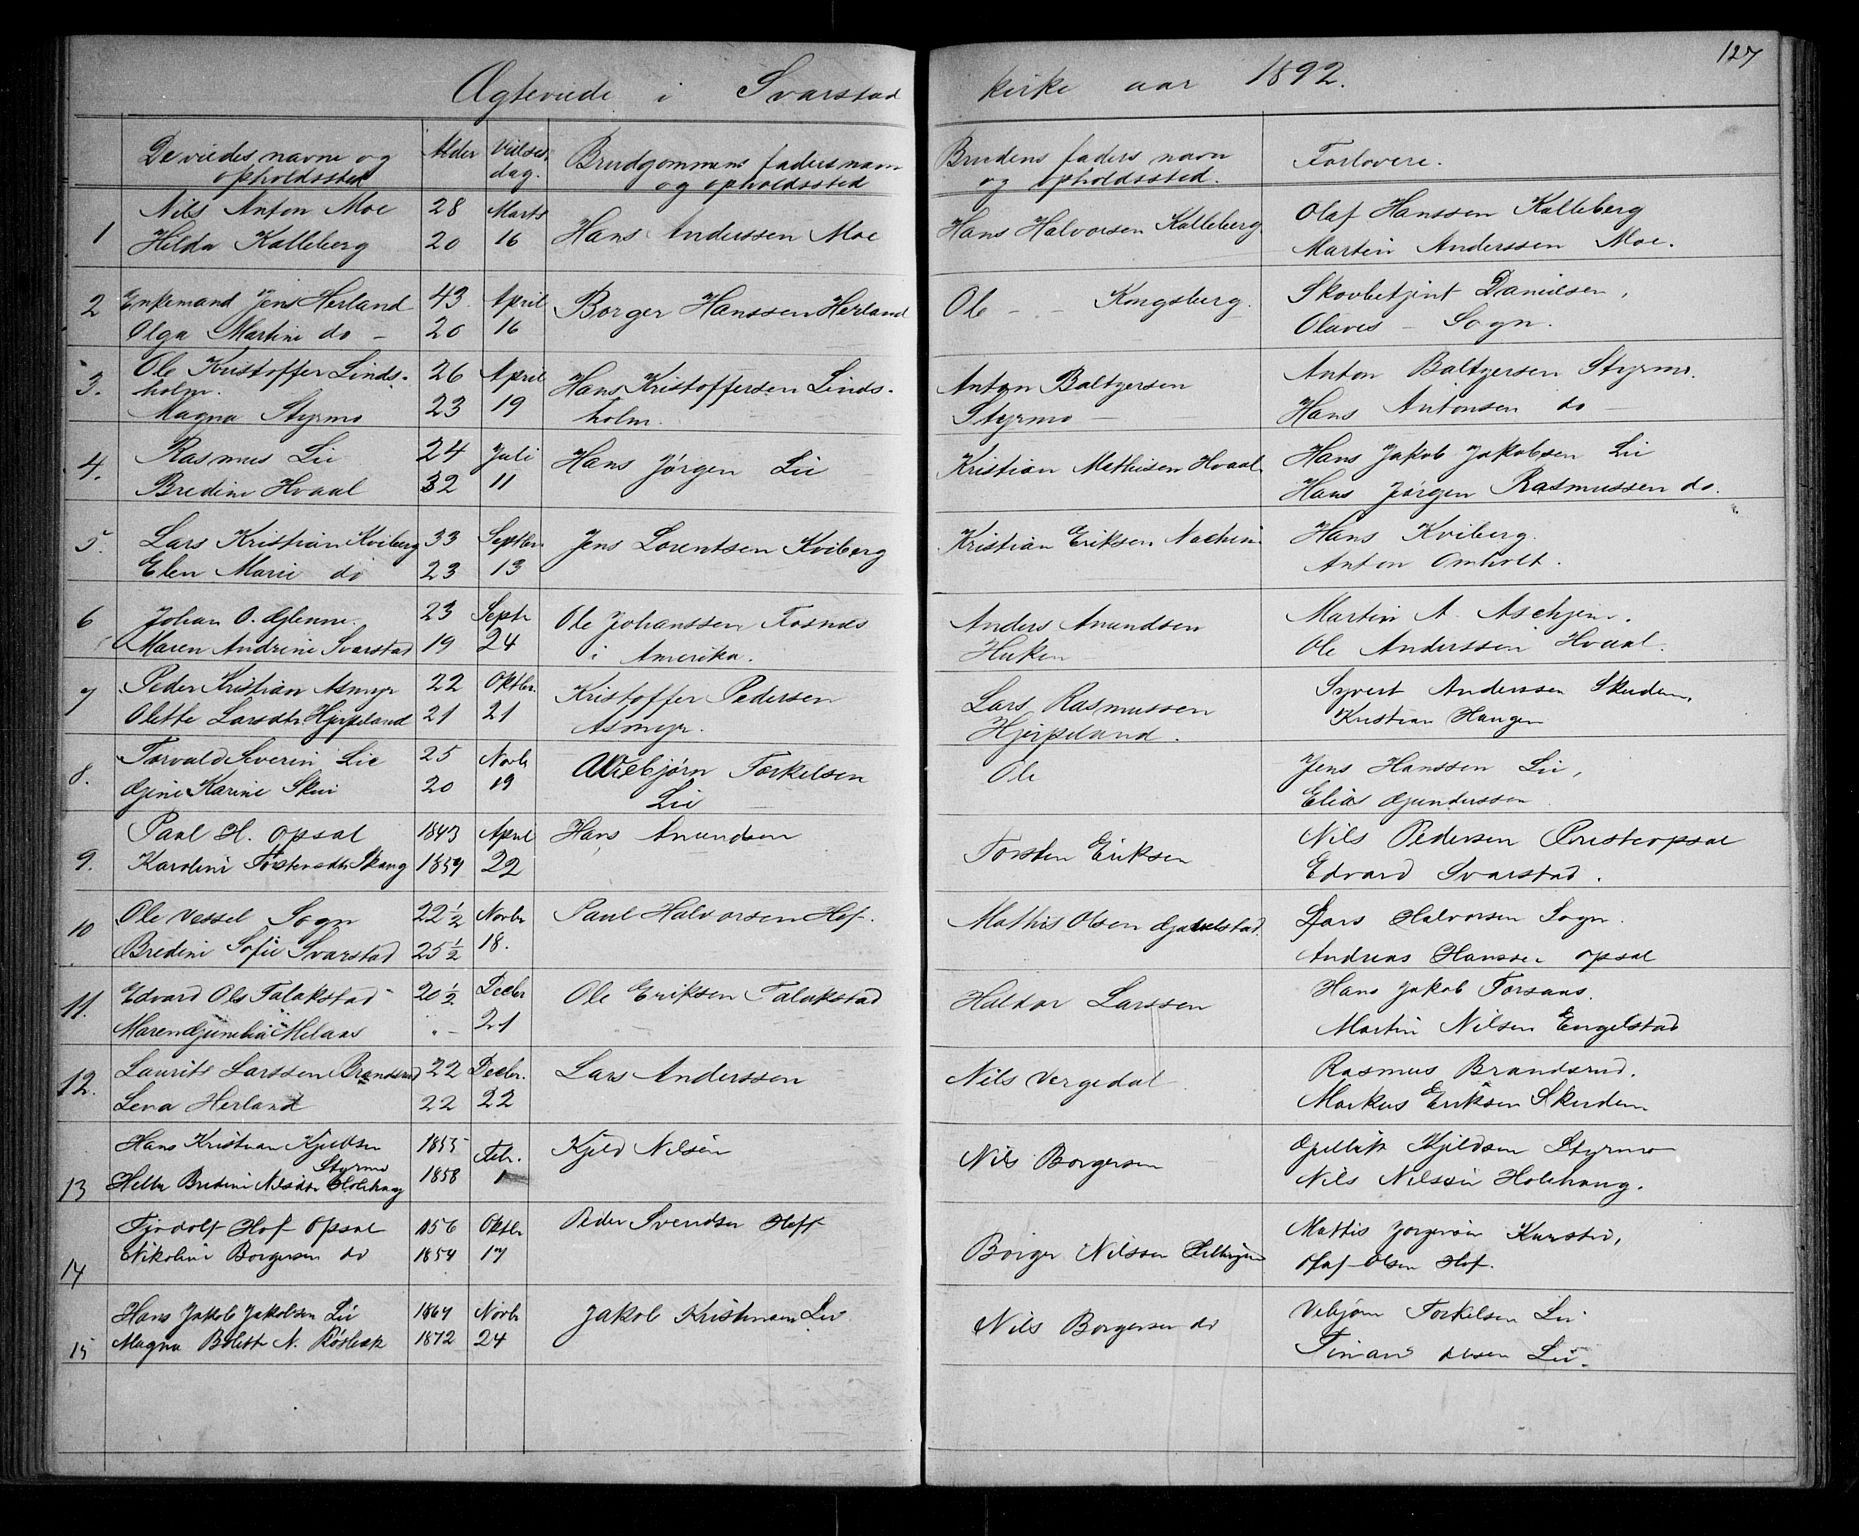 127
Ægteviede i Svarstad kirke aar 1892.
De viedes navne og opholdssted
Alder
Vielses dag.
Brudgommens faders navn og opholdssted
Brudens faders navn og opholdssted.
Forlovere.
1
Nils Anton Moe 28 Marts
Hilda Kalleberg 20 16
Hans Anderssen Moe
Hans Halvorsen Kalleberg
Olaf Hanssen Kalleberg
Martin Anderssen Moe.
2
Enkemand Jens Herland 43 April
Olga Martini do - 20 16
Borger Hanssen Herland
Ole - - Kongsberg.
Skovbetjent Danielsen,
Olaves - Sogn.
3.
Ole Kristoffer Linds- 26 April
holm.
Magna Styrmo 23 19
Hans Kristoffersen Linds-
holm.
Anton Baltzersen
Styrmo -
Anton Baltzersen Styrmo.
Hans Antonsen do -
4.
Rasmus Lie 24 Juli
Bredine Hvaal 32 11
Hans Jørgen Lie
Kristian Mathisen Hvaal
Hans Jakob Jakobsen Lie
Hans Jørgen Rasmussen do.
5.
Lars Kristian Kviberg 33 Septbr
Elen Marie do 23 13
Jens Lorentsen Kviberg
Kristian Eriksen
Hans Kviberg.
Anton Omholt.
6
Johan O. Glenne. 23 Septr
Maren Andrine Svarstad 19 24
Ole Johanssen Fosnæs
i Amerika.
Anders Amundsen
Huken
Martin A. Aschjem.
Ole Anderssen Hvaal.
7
Peder Kristian Asmyr 22 Oktbr.
Olette Larsdtr Hjerpeland 21 21
Kristoffer Pedersen
Asmyr.
Lars Rasmussen
Hjerpeland.
Syvert Anderssen Skuden,
Kristian Haugen
8.
Torvald Severin Lie 25 Novb
Gjine Karine Skui 20 19
Viebjørn Torkelsen
Lie
Ole
Jens Hanssen Lie,
Elias Gunderssen
9.
Paul H. Opsal 1843 April
Karoline Torstensdtr Skaug 1859 22
Hans Amundsen
Torsten Eriksen
Nils Pedersen Presteopsal
Edvard Svarstad.
10
Ole Vessel Sogn 22 ½ Novbr
Bredine Sofie Svarstad 25 ½ 18.
Paul Halvorsen Hof.
Mathis Olsen
Lars Halvorsen Sogn.
Andreas Hanssen Opsal
11.
Edvard Ols Falakstad 20 ½ Decbr
Maren Gunelia Melaas " - 21
Ole Eriksen Falakstad
Haldor Larssen
Hans Jakob Torsaas.
Martin Nilsen Engelstad
12.
Laurits Larssen Brandsrud 22 Decbr.
Lena Herland 22 22
Lars Anderssen
Nils Vergedal
Rasmus Brandsrud.
Markus Eriksen Skuden
13
Hans Kristian Kjeldsen 1855 Febr.
Styrmo
Bredine Nilsdtr Holehaug 1858 1
Kjeld Nilsen
Nils Borgersen
Kjeldsen Styrmo
Nils Nilsen Holehaug.
14
Tjodolf Hof Opsal 1856 Oktbr
Nikoline Borgersen do 1854 17
Peder Svendsen Hoff
Borger Nilssen
Mattis Jørgensen
Olaf Olsen Hof.
15
Hans Jakob Jakobsen Lie 1864 Novbr
Magna Bolette N. 1872 24
Jakob Kristensen Lie
Nils Borgersen do
Vebjørn Torkelsen Lie
Olsen Lie.